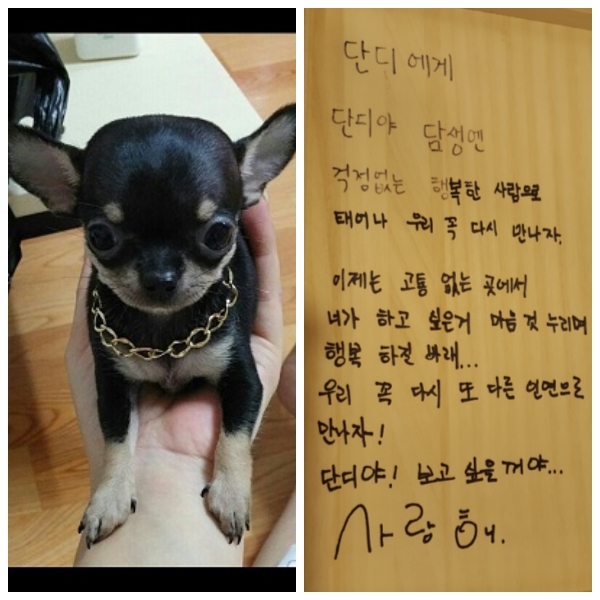 단디에게
단디야 담생엔
걱정없는 행복한 사람으로
태어나 우리 꼭 다시 만나자.
이제는 고통 없는 곳에서
너가 하고 싶은거 마음 것 누리며
행복 하길 바래...
우리 꼭 다시 또 다른 인연으로
만나자!
단디야! 보고 싶을거야...
사랑해.